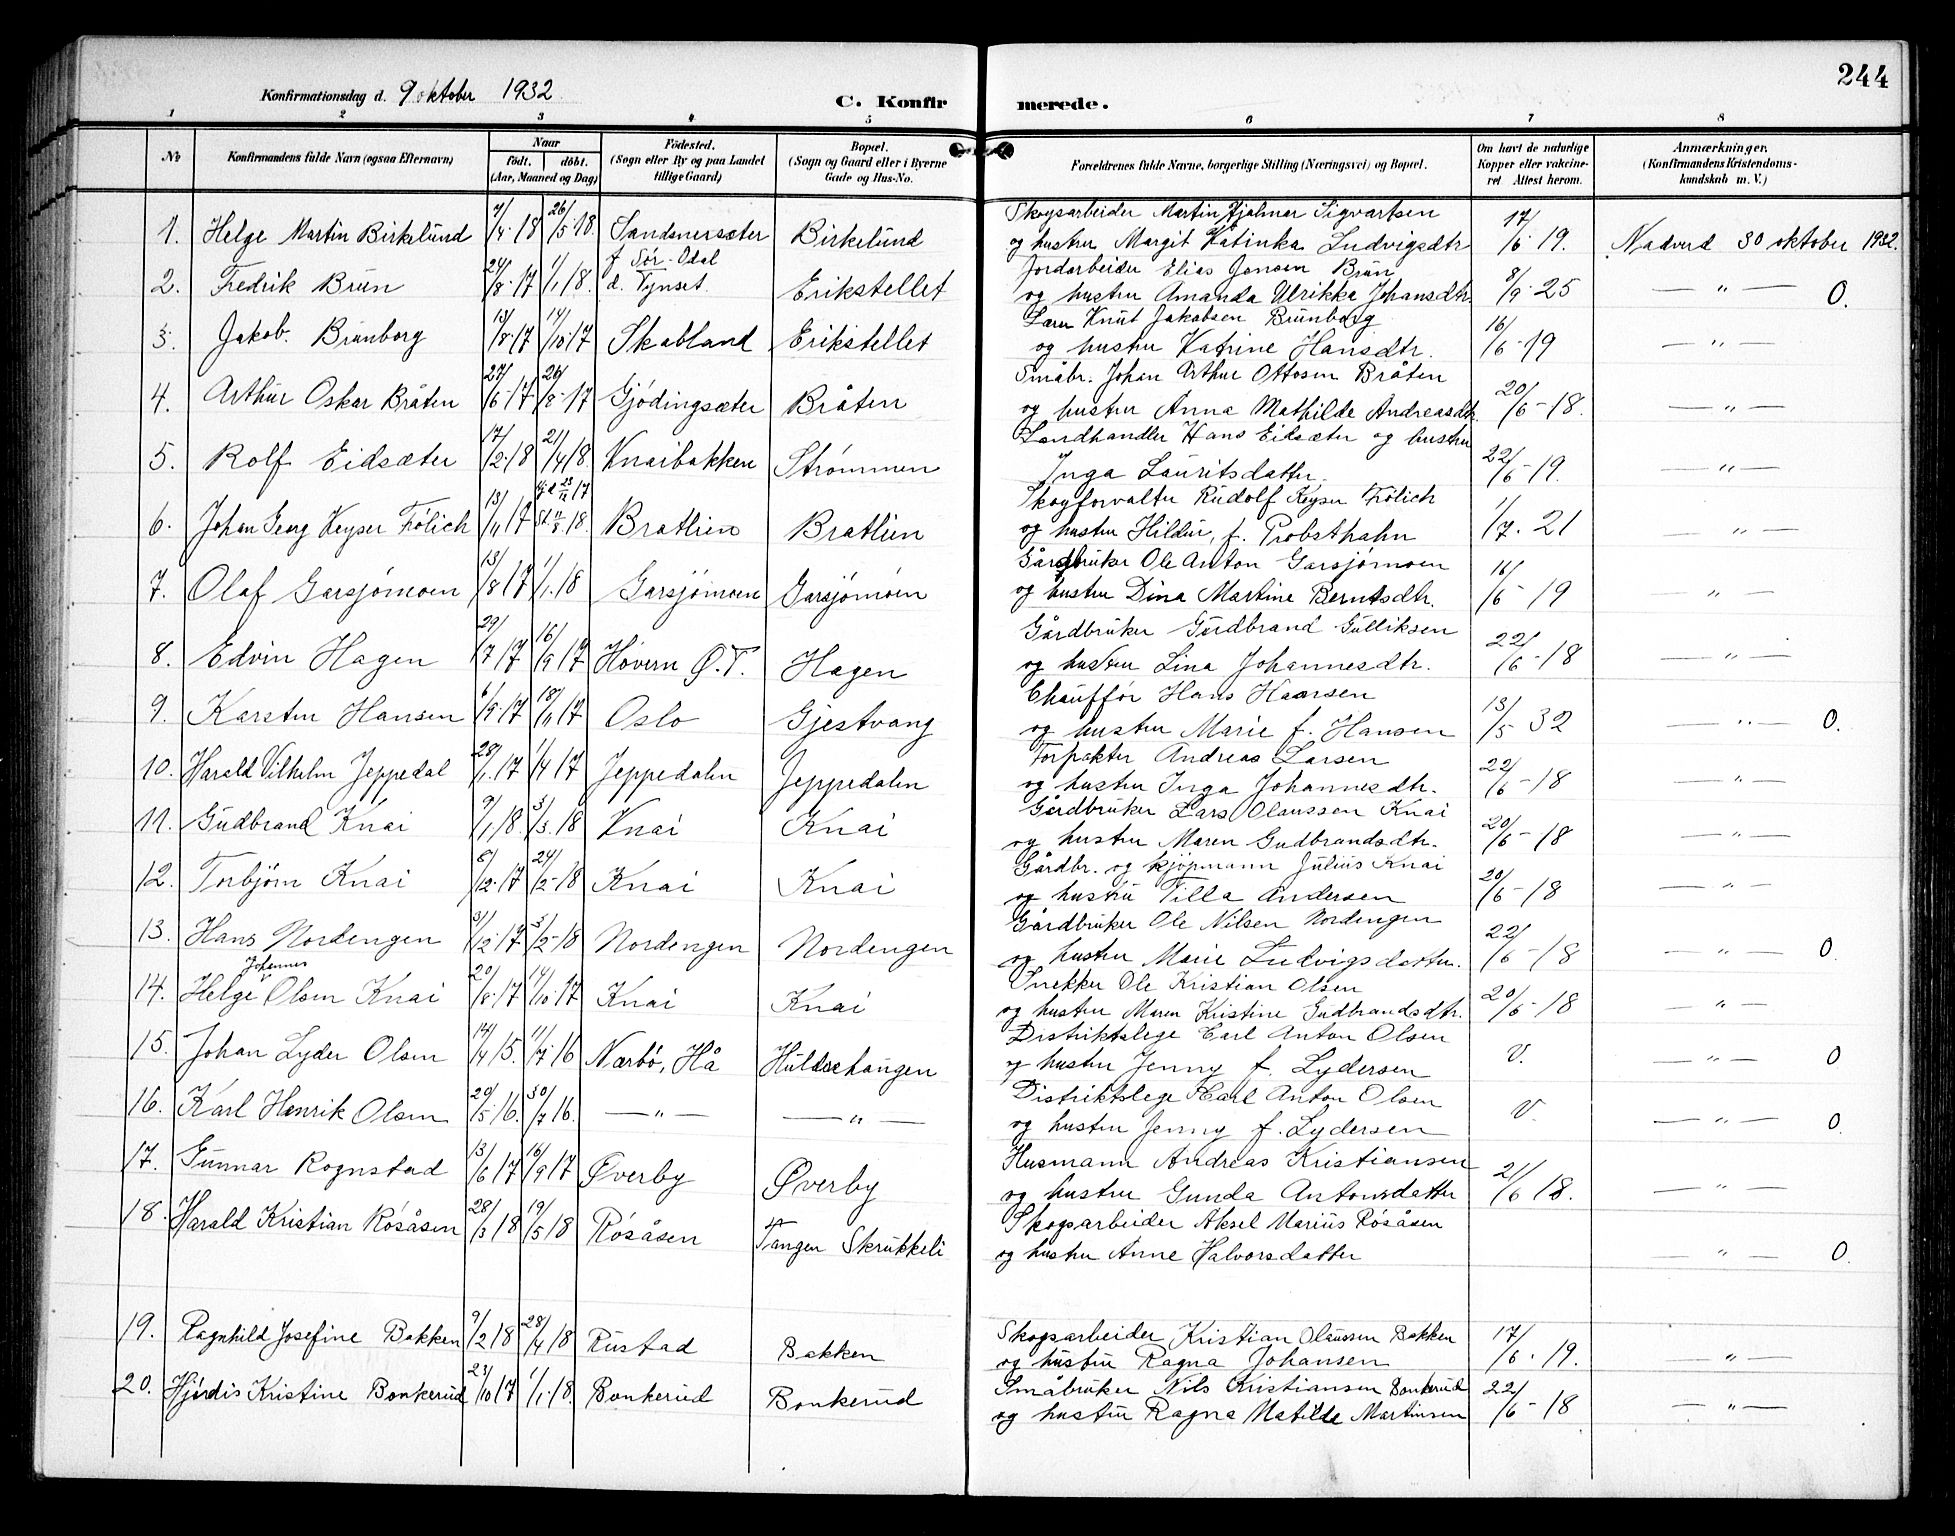 244
Konfirmationsdag d. 9 oktober 1932
C. Konfirmerede.
1 2 3 4 5 6 7 8
№ Konfirmandens fulde Navn (ogsaa Efternavn) Naar født. døbt. (Aar, Maaned og Dag) Fødested. (Sogn eller By og paa Landet tillige Gaard) Bopæl. (Sogn og Gaard eller i Byerne Gade og Hus-No. Forældrenes fulde Navne, borgerlige Stilling (Næringsvei) og Bopæl. Om havt de naturlige Kopper eller vakcineret Attest herom. Anmærkninger. (Konfirmandens Kristendomskundskab m. V.)
1. Helge Martin Birkelund 7/4 18 26/5 18. Sandsnersæter Birkelund Skogsarbeider Martin Hjalmar Sigvartsen 17/6 19. Nadverd 30 oktober 1932.
og hustru Margit Katinka Ludvigsdtr
2. Fredrik Brun 24/8 17 1/1 18. f Sør-Odal d. Tynset. Erikstellet Jordarbeider Elias Jensen Brun 8/9 25 — " — O.
og hustru Amanda Ulrikka Johansdtr.
3. Jakob. Brunborg 13/8 17 14/10 17 Skabland Erikstellet Lærer Knut Jakobsen Brunborg 16/6 19 — " —
og hustru Katrine Hansdtr.
4. Arthur Oskar Bråten 27/6 17 26/8 17 Gjödingsæter Bråten Småbr. Johan Arthur Ottosen Bråten 20/6 - 18. — " —
og hustru Anna Mathilde Andreasdtr.
5. Rolf Eidsæter 17/2 18 21/4 18. Knaibakken Strømmen Landhandler Hans Eidsæter og hustru 22/6 19. — " —
Inga Lauritsdatter.
6. Johan Georg Keyser Frölich 13/11 17 18. Bratlien Bratlien Skogforvalter Rudolf Keyser Frölich 1/7. 21 — " —
og hustru Hildur, f. Probsthahn
7. Olaf Garsjömoen 13/8 17 1/1. 18 Garsjömoen Garsjömoen Gårdbruker Ole Anton Garsjömoen 16/6 - 19 — " —
og hustru Dina Martine Berntsdtr.
8. Edvin Hagen 29/7 17 16/9 17 Hovern Ø.T. Hagen Gårdbruker Gudbrand Gulliksen 22/6 - 18 — " —
og hustru Lina Johannesdtr.
9. Karsten Hansen 6/9 17 18/11 17 Oslo Gjestvang Chauffør Hans Haarsen 13/5 32 — " — O.
og hustru Marie f. Hansen
10. Harald Vilhelm Jeppedal 28/1. 17 1/4 17 Jeppedalen Jeppedalen Forpakter Andreas Larsen 22/6 - 18 — " —
og hustru Inga Johannesdtr.
11. Gudbrand Knai 9/1 18. 3/3. 18 Knai Knai Gårdbruker Lars Olaussen Knai 20/6 - 18 — " —
og hustru Maren Gudbrandsdtr.
12. Torbjörn Knai 8/12 17 24/2 - 18 Knai Knai Gårdbr. og kjöpmann Julius Knai 20/6 - 18 — " —
og hustru Tilla Andersen
13. Hans Nordengen 3/12 17 3/2 - 18 Nordengen Nordengen Gårdbruker Ole Nilsen Nordengen 22/6 - 18 — " — O.
og hustru Marie Ludvigsdatter.
14. Helge Johannes Olsen Knai 20/8 17 14/10 17 Knai Knai Snekker Ole Kristian Olsen 20/6 - 18 — " —
og hustru Maren Kristine Gudbrandsdtr.
15. Johan Lyder Olsen 14/4 15. 11/7 16 Nærbö, Hå Huldrehaugen Distriktslege Carl Anton Olsen V. — " — O
og hustru Jenny f. Lydersen
16. Karl Henrik Olsen 29/5 16. 30/7 16. — " — — " — Distriktslege Carl Anton Olsen V — " — O.
og hustru Jenny f. Lydersen
17. Gunnar Rognstad 13/6 17 16/9 17 Øverby Øverby Husmann Andreas Kristiansen 21/6 18. — " —
og hustru Gunda Antonsdatter
18. Harald Kristian Rösåsen 28/3 18 19/5 18 Rösåsen Tangen Skrukkeli Skogsarbeider Aksel Marius Rösåsen — " — O.
og hustru Anne Halvorsdatter
19. Ragnhild Josefine Bakken 9/2 18 28/4 18 Rustad Bakken Skogsarbeider Kristian Olaussen Bakken 17/6. 19. — " —
og hustru Ragna Johansen
20. Hjördis Kristine Bonkerud 23/10 17 1/1. 18. Bonkerud Bonkerud Småbruker Nils Kristiansen Bonkerud 22/6 - 18 — " —
og hustru Ragna Matilde Martinsen